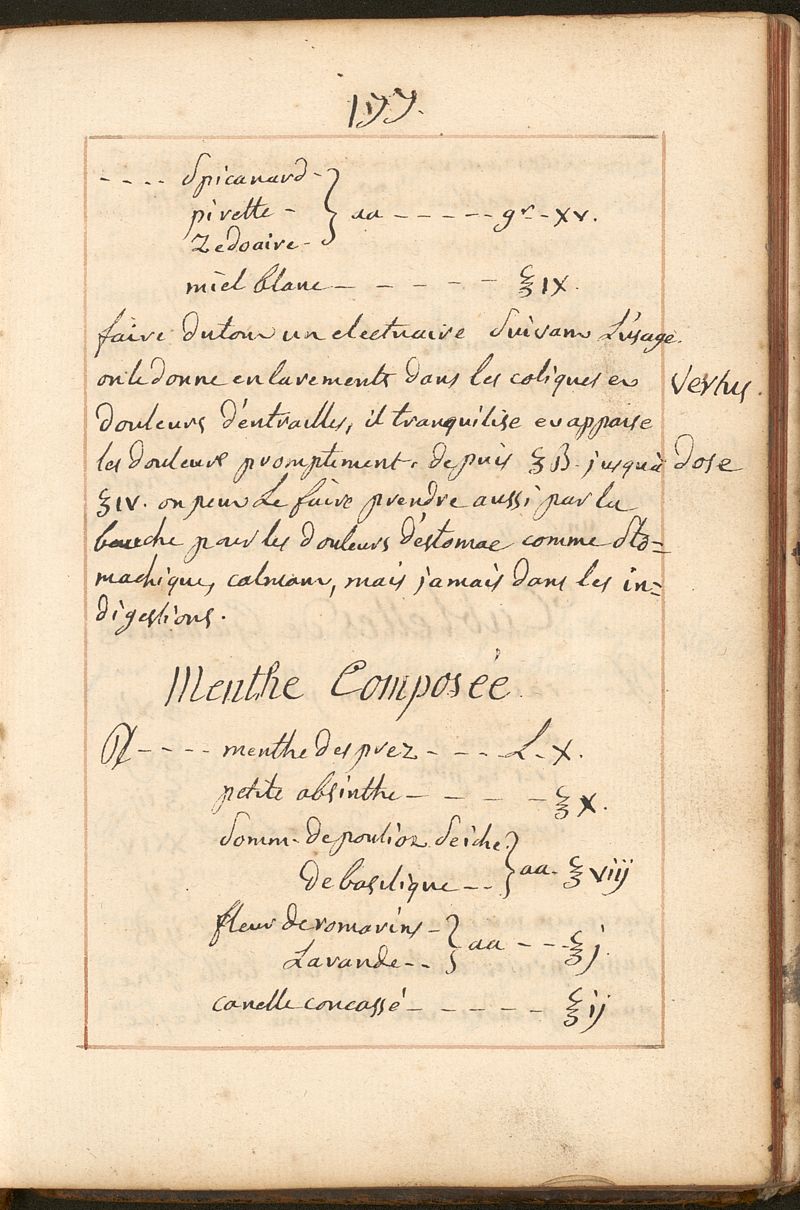 177.
---- Spicanard -
pirette - } aa ----- gr - xv.
Zedoaire -
miel blanc ----- ℥ IX.
faire du tout un electuaire suivant L'usage.
on le donne en lavements dans les coliques et vertus.
douleurs d'entrailles, il tranquilise et appaise
les douleurs promptement. depuis ℥ ß. jusqu'a dose
℥ IV. on peut Le faire prendre aussi par la
bouche pour les douleurs d'estomac comme sto=
machique, calmant, mais jamais dans les in=
digestions.
Menthe Composée
℞ ---- menthe des prez --- L. X.
petite absinthe ----- ℥ X.
Somm. de pouliot seiche } aa. ℥ viij
de basilique --
fleur de romarins - } aa --- ℥ j.
Lavande --
canelle concassé ----- ℥ ij